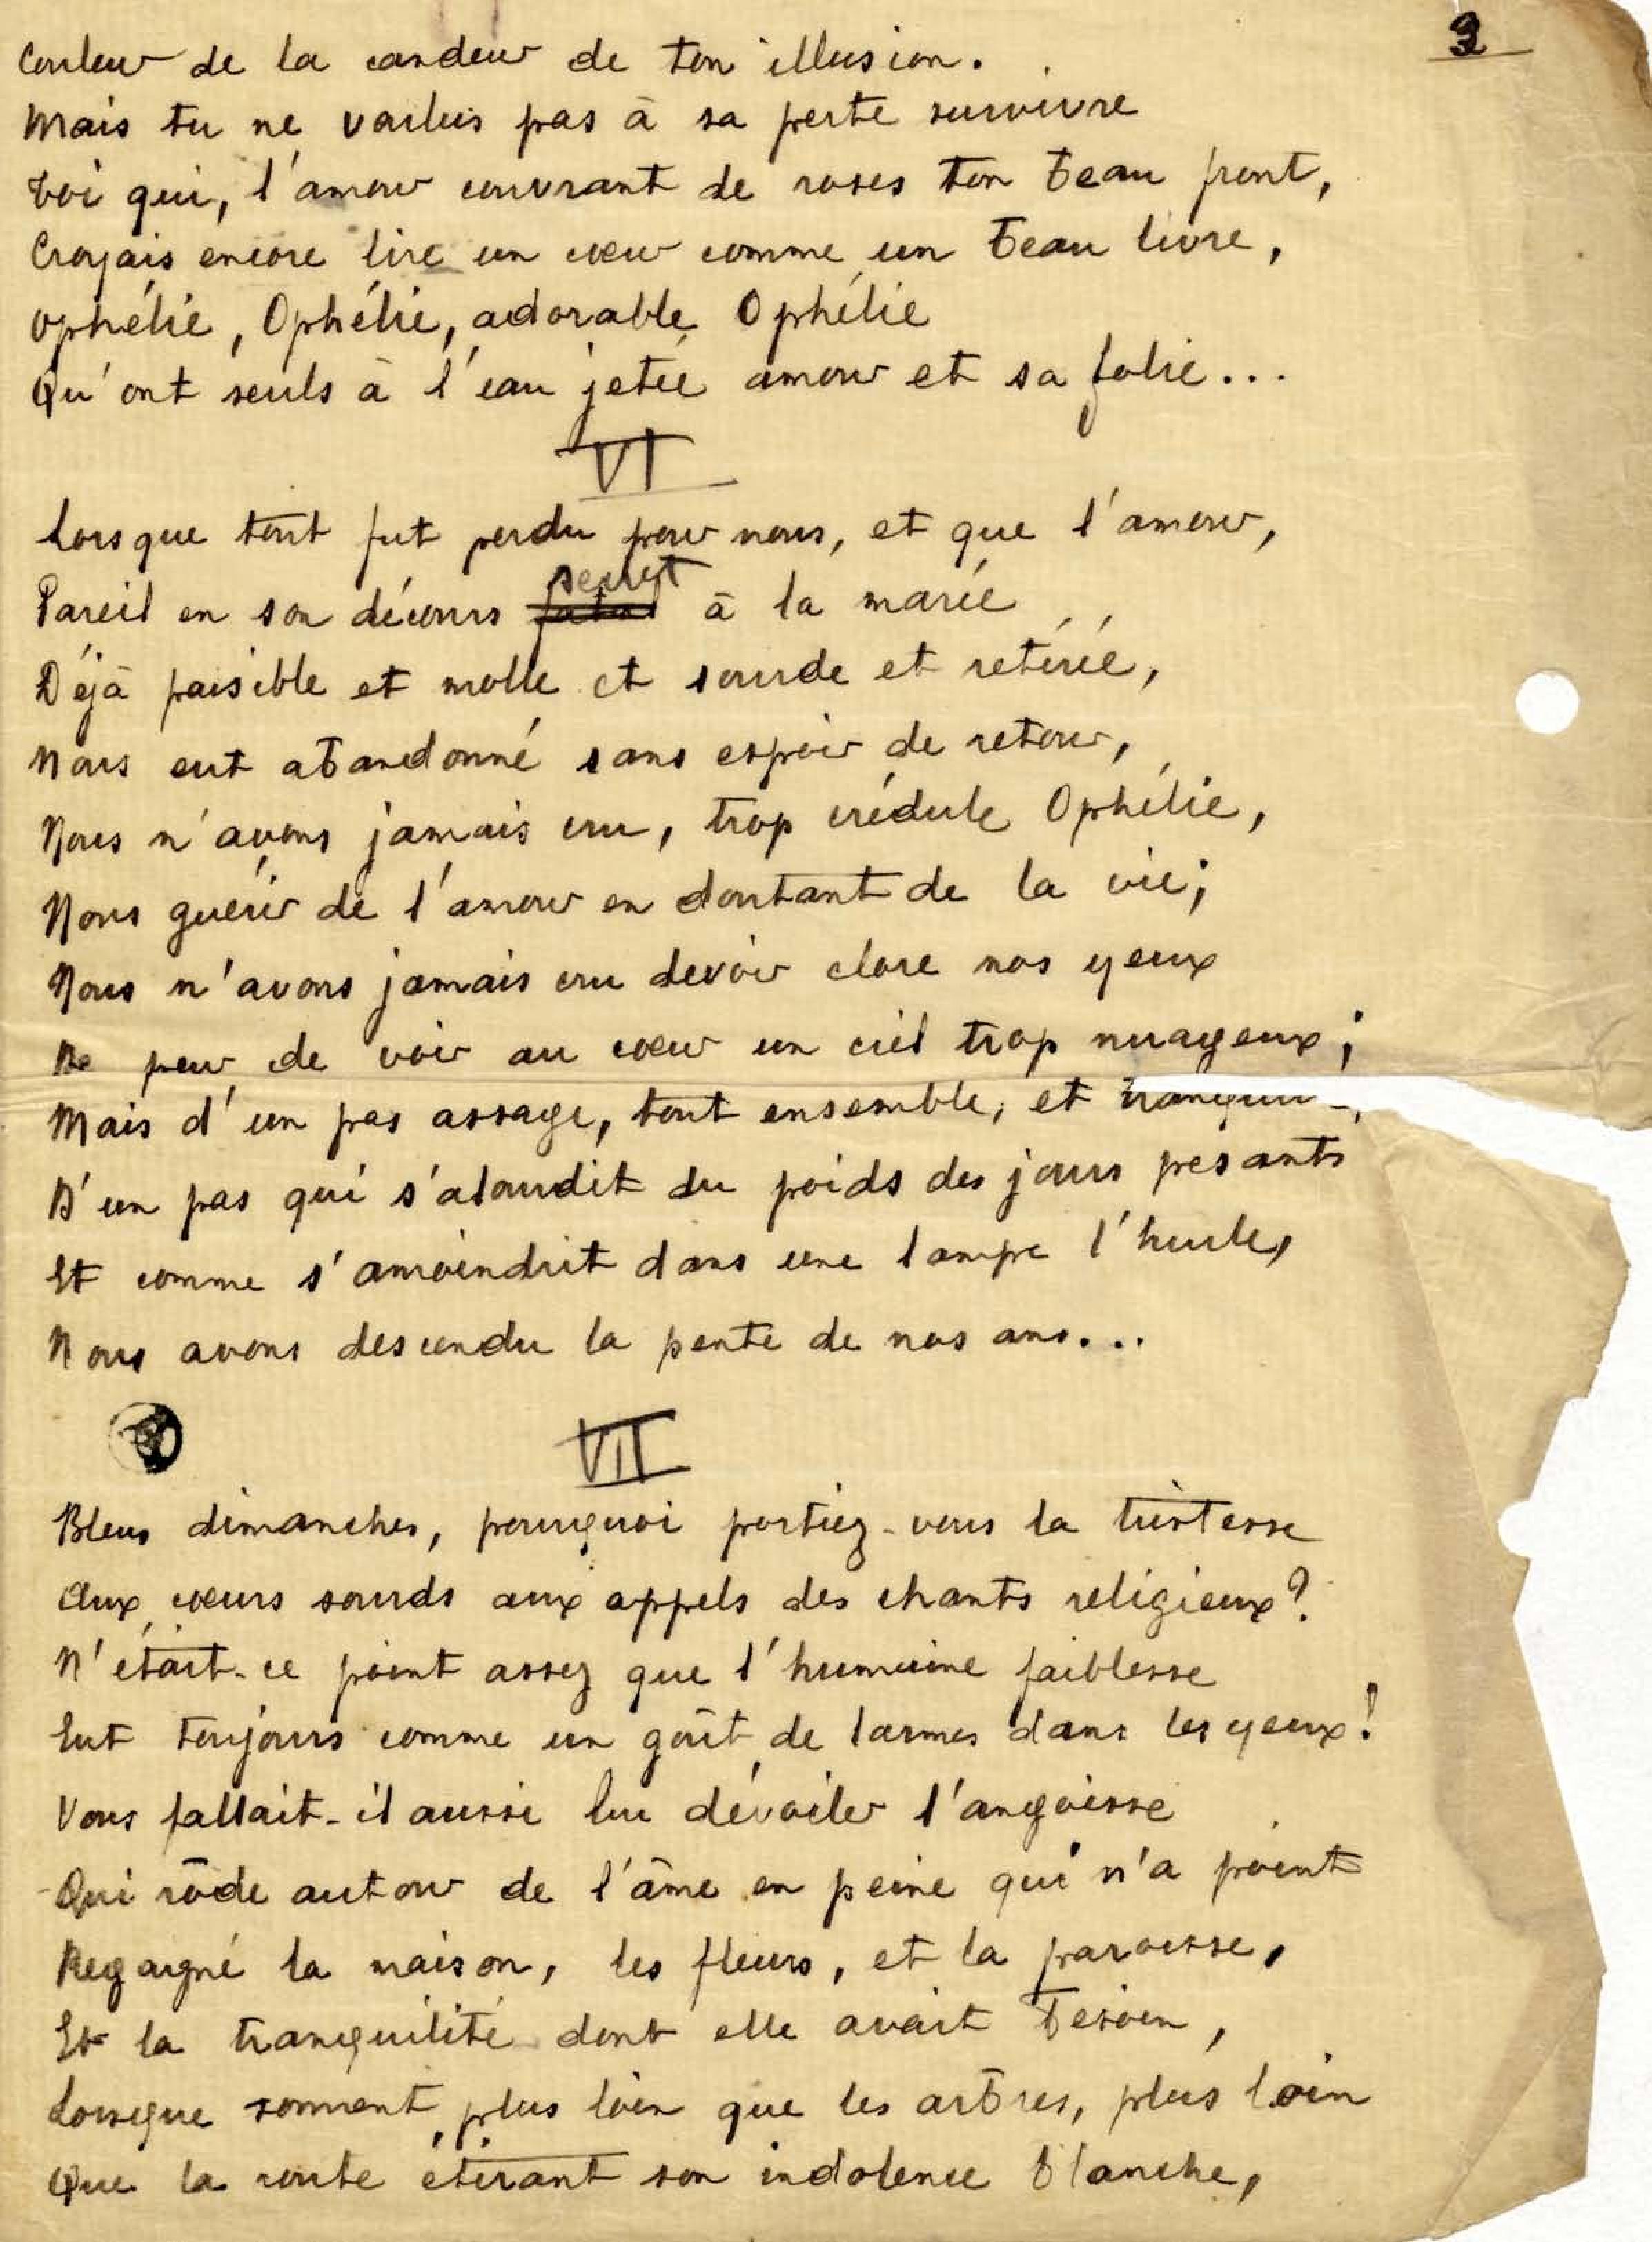 3
Couleur de la candeur de ton illusion.
Mais tu ne voulus pas à sa perte survivre
Toi qui, l'amour couvrant de roses ton beau front,
Croyais encore lire un cœur comme un beau livre,
Ophélie, Ophélie, adorable Ophélie
Qu'ont seuls à l'eau jetée amour et sa folie...
VI
Lorsque tout fut perdu pour nous, et que l'amour,
secret
Pareil en son décours fatal à la marée
Déjà paisible et molle et sourde et retirée,
Nous eut abandonné sans espoir de retour,
Nous n'avons jamais cru, trop crédule Ophélie,
Nous guérir de l'amour en doutant de la vie;
Nous n'avons jamais cru devoir clore nos yeux
De peur de voir au cœur un ciel trop nuageux;
Mais d'un pas assagi, tout ensemble, et
D'un pas qui s'alourdit du poids des jours pesants
Et comme s'amoindrit dans une lampe l'huile,
Nous avons descendu la pente de nos ans...
VII
Bleus dimanches, pourquoi portiez-vous la tristesse
Aux cœurs sourds aux appels des chants religieux?
N'était-ce point assez que l'humaine faiblesse
Eut toujours comme un goût de larmes dans les yeux!
Vous fallait-il aussi lui dévoiler l'angoisse
Qui rôde autour de l'âme en peine qui n'a point
Regagné la maison, les fleurs, et la paroisse,
Et la tranquilité dont elle avait besoin,
Lorsque sonnent, plus loin que les arbres, plus loin
Que la route étirant son indolence blanche,